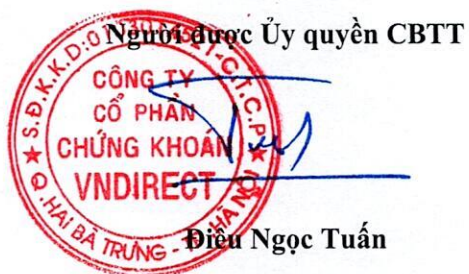 Người được Ủy quyền CBTT
S.Đ.K.K.D:
C.T.C.P
CÔNG TY
CỔ PHẦN
CHỨNG KHOÁN
VNDIRECT
Q. HAI BÀ TRƯNG - TP. HÀ NỘI
Điêu Ngọc Tuấn